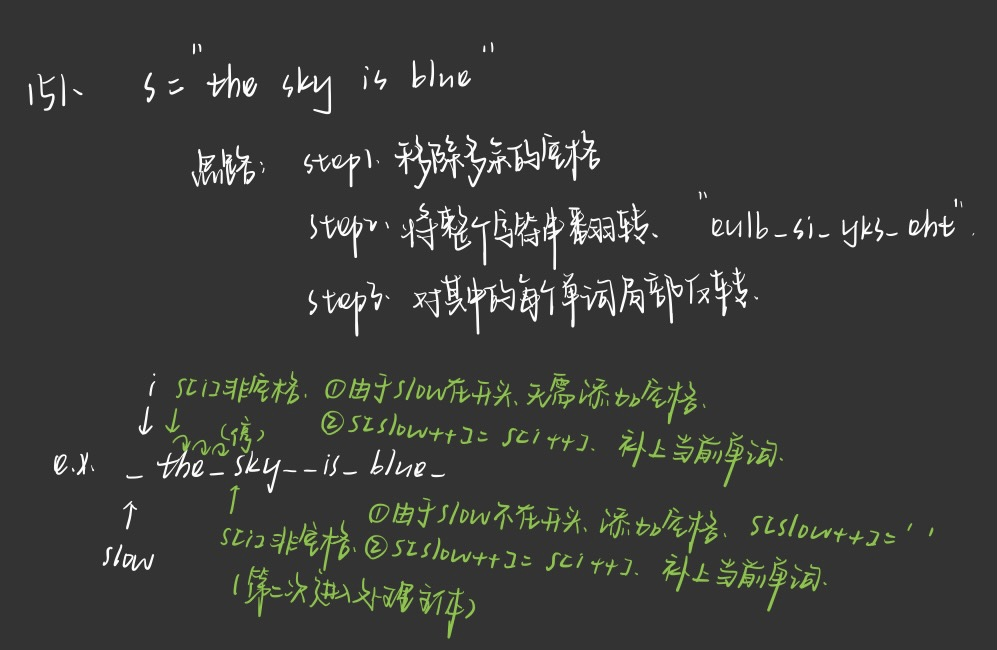 151、 s = "the sky is blue"
思路： step1. 移除多余的空格
step2. 将整个字符串翻转、 "eulb_si_yks_eht".
step3. 对其中的每个单词局部反转.
i s[i]非空格. ①由于slow在开头、无需添加空格.
(停) ②s[slow++] = s[i++]. 补上当前单词.
e.x. _ the_sky__is_blue_
slow
①由于slow不在开头、添加空格. s[slow++] = ' '
s[i]非空格. ②s[slow++] = s[i++]. 补上当前单词.
(第二次进入处理主体)